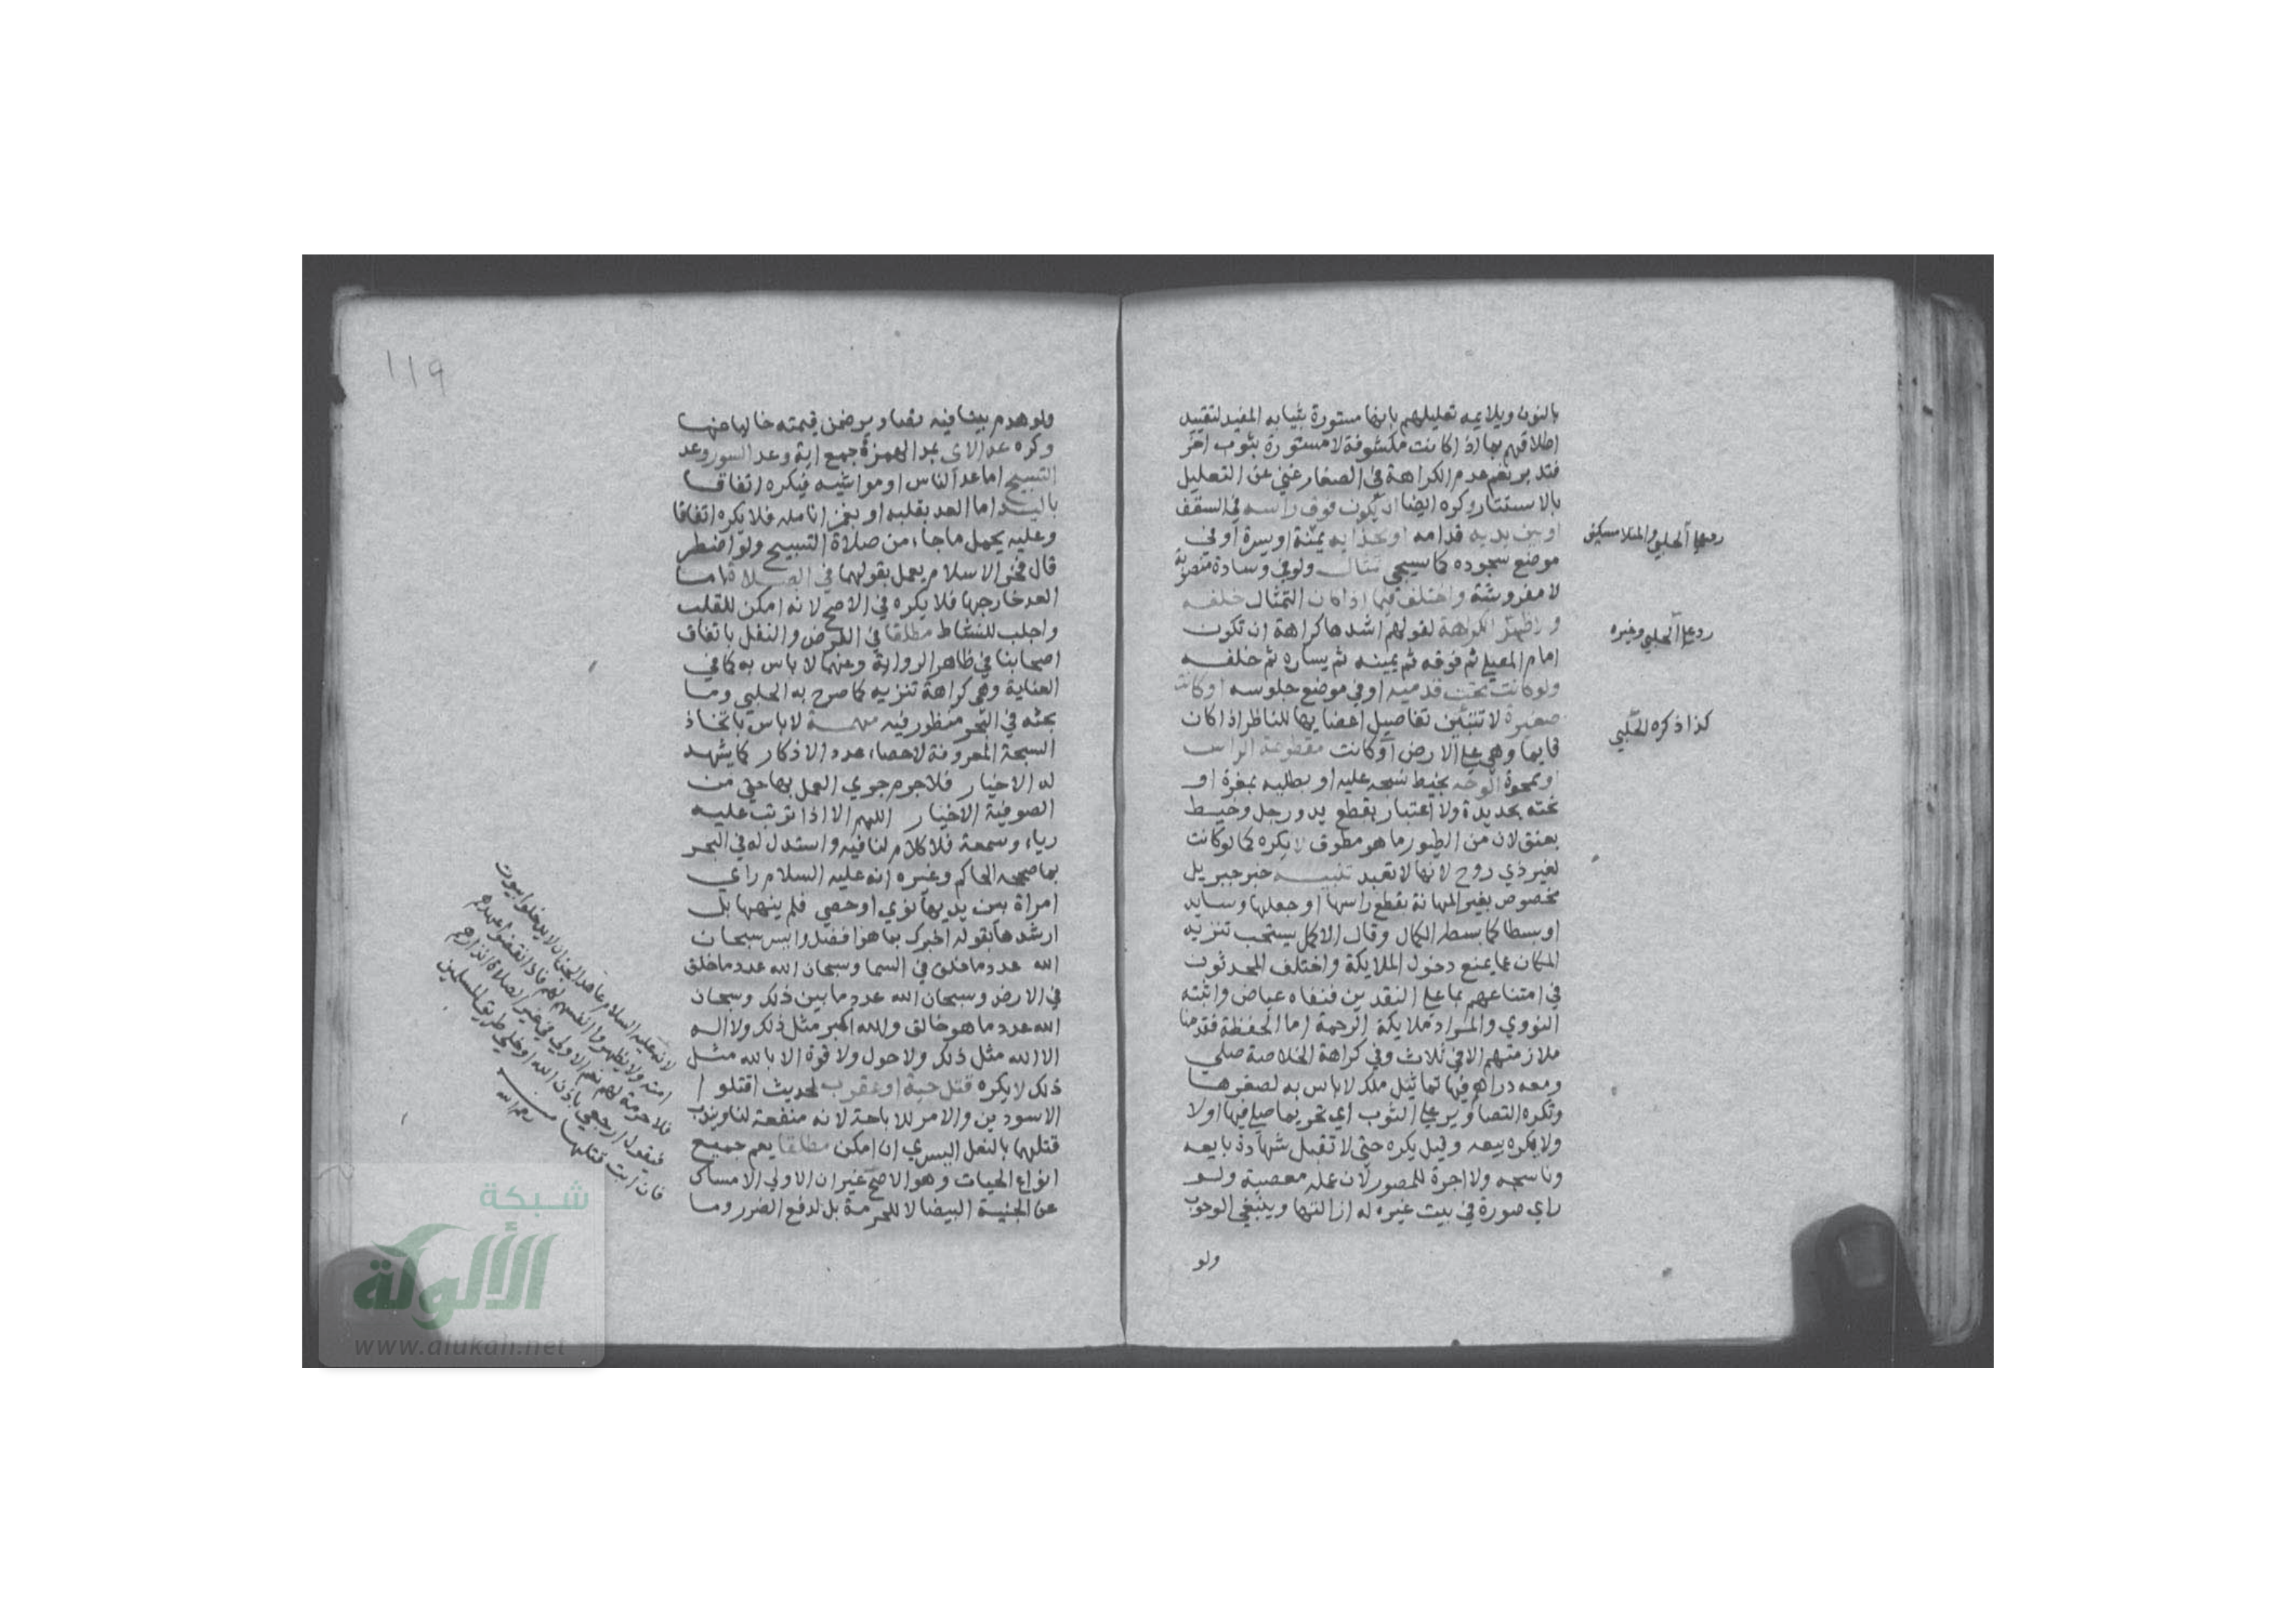 بالنون ويلايمه تعليلهم بانها مستورة بثيابه المفيد لتقييد
اطلاقهم بما اذا كانت مكشوفة لا مستورة بثوب اخر
فتدبر نعم عدم الكراهة في الصغار غني عن التعليل
بالاستتار وكره ايضا ان يكون فوق راسه في السقف
او بين يديه قدامه او بحذايه يمنة او يسرة او في
موضع سجوده كما سيجي تمثال ولو في وسادة منصوبة
لا مفروشة واختلف فيما اذا كان التمثال خلفه
والاظهر الكراهة لقولهم اشدها كراهة ان تكون
امام المصلي ثم فوقه ثم يمينه ثم يساره ثم خلفه
ولو كانت تحت قدميه او في موضع جلوسه او كانت
صغيرة لا تتبين تفاصيل اعضايها للناظر اذا كان
قايما وهي علي الارض او كانت مقطوعة الراس
او ممحوة الوجه بخيط نسجه عليه او بطليه بمغرة او
نحته بحديدة ولا اعتبار بقطع يد ورجل وخيط
بعنق لان من الطيور ما هو مطوق لا يكره كما لو كانت
لغير ذي روح لانها لا تعبد تنبيه خبر جبريل
مخصوص بغير المهانة بقطع راسها او جعلها وسايد
او بسطا كما بسطه الكمال وقال الاكمل يستحب تنزيه
المكان عما يمنع دخول الملايكة واختلف المحدثون
في امتناعهم بما علي النقدين فنفاه عياض واثبته
النووي والمراد ملايكة الرحمة اما الحفظة فقدمنا
ملازمتهم الا في ثلاث وفي كراهة الخلاصة صلي
ومعه دراهم فيها تماثيل ملك لا باس به لصغرها
وتكره التصاوير علي الثوب اي تحريما صلي فيها اولا
ولا يكره بيعه وقيل يكره حتي لا تقبل شهادة بايعه
وناسجه ولا اجرة للمصور لان عمله معصية ولو
راي صورة في بيت غيره له ازالتها وينبغي الوجوب
ولو
رد علي الحلبي والمنلا مسكين
رد علي الحلبي وغيره
كذا ذكره الحلبي
١١٩
ولو هدم بيتا فيه تصاوير ضمن قيمته خاليا منها
وكره عد الاي بمد الهمزة جمع اية وعد السور وعد
التسبيح اما عد الناس او مواشيه فيكره اتفاقا
باليد اما العد بقلبه او بغمز انامله فلا يكره اتفاقا
وعليه يحمل ما جاء من صلاة التسبيح ولو اضطر
قال فخر الاسلام يعمل بقولهما في الصلاة اما
العد خارجها فلا يكره في الاصح لانه امكن للقلب
واجلب للنشاط مطلقا في الفرض والنفل باتفاق
اصحابنا في ظاهر الرواية وعنهما لا باس به كما في
العناية وهي كراهة تنزيه كما صرح به الحلبي وما
بحثه في البحر منظور فيه مهمة لا باس باتخاذ
السبحة المعروفة لاحصاء عدد الاذكار كما يشهد
له الاخبار فلا جرم جري العمل بها حتي من
الصوفية الاخيار اللهم الا اذا ترتب عليه
رياء وسمعة فلا كلام لنا فيه واستدل له في البحر
بما صححه الحاكم وغيره انه عليه السلام راي
امراة بين يديها نوي او حصي فلم ينهها بل
ارشدها بقوله اخبرك بما هو افضل وايسر سبحان
الله عدد ما خلق في السما وسبحان الله عدد ما خلق
في الارض وسبحان الله عدد ما بين ذلك وسبحان
الله عدد ما هو خالق والله اكبر مثل ذلك ولا اله
الا الله مثل ذلك ولا حول ولا قوة الا بالله مثل
ذلك لا يكره قتل حية او عقرب لحديث اقتلوا
الاسودين والامر للاباحة لانه منفعة لنا ويندب
قتلها بالنعل اليسري ان امكن مطلقا يعم جميع
انواع الحيات وهو الاصح غير ان الاولي الامساك
عن الجنية البيضا لا للحرمة بل لدفع الضرر وما
لانه عليه السلام عاهد الجان ان لا يدخلوا بيوت
امته ولا يظهروا انفسهم لهم فاذا نقضوا عهدهم
فلا حرمة لهم نعم الاولي في غير الصلاة الانذار
فيقول ارجعي باذن الله او خلي طريق المسلمين
فان ابت قتلها
رحمه الله
شبكة
الألوكة
www.alukah.net